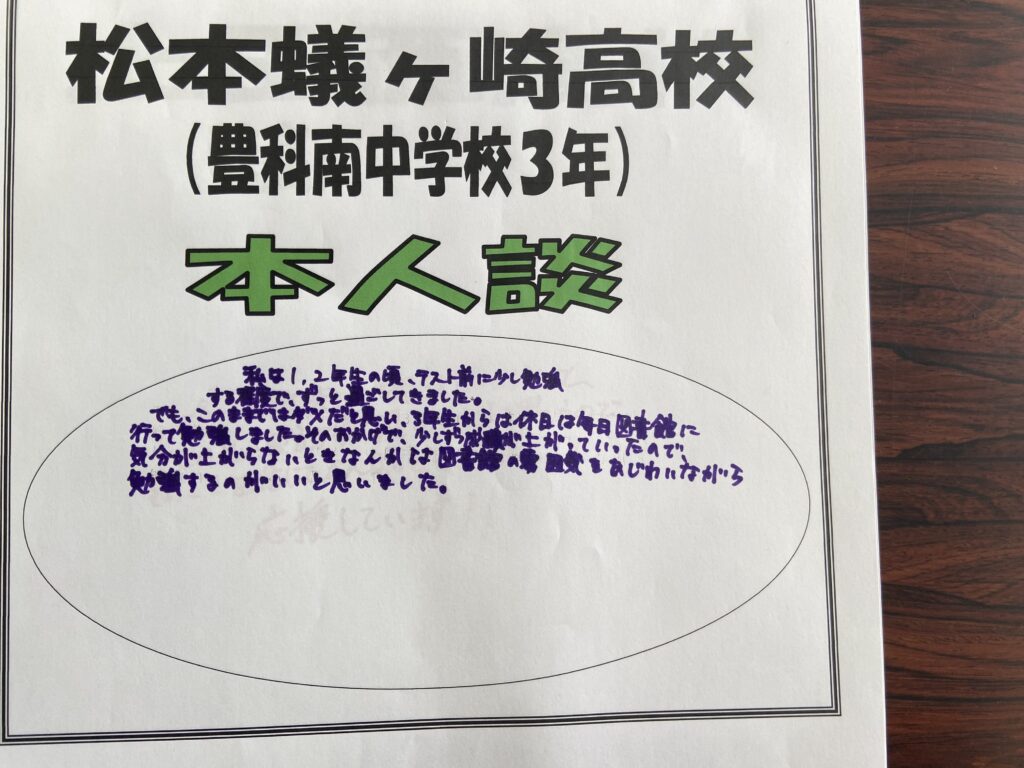 松本蟻ヶ崎高校
(豊科南中学校3年)
本人談
私は1,2年生の頃、テスト前に少し勉強
する程度で、ずっと過ごしてきました。
でも、このままではダメだと思い、3年生からは休日は毎日図書館に
行って勉強しました。そのおかげで、少しずつ成績が上がっていったので、
気分が上がらないときなんかは図書館の雰囲気をあじわいながら
勉強するのがいいと思いました。
応援しています